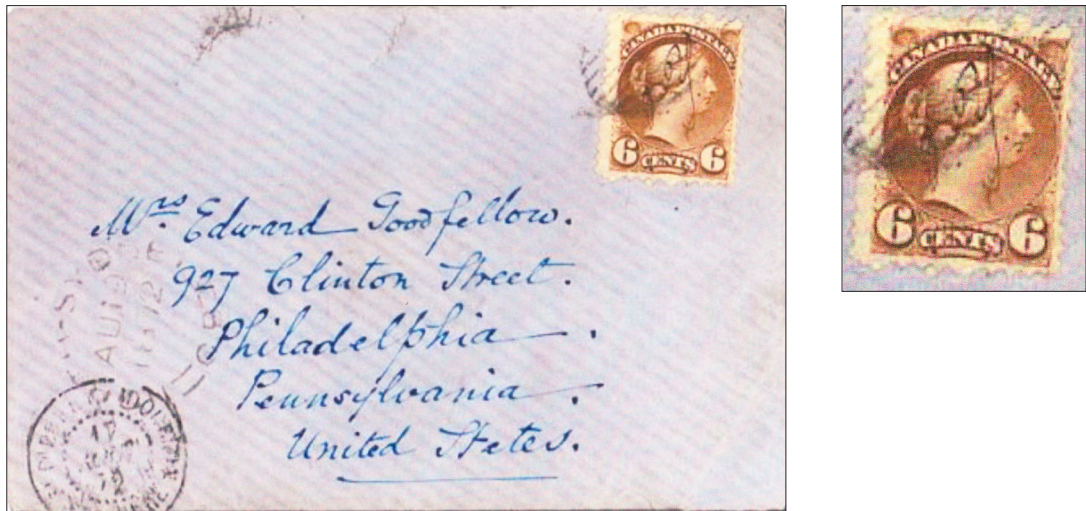 CANADA POSTAGE
6 CENTS 6
Mrs Edward Goodfellow.
927 Clinton Street.
Philadelphia.
Pennsylvania.
United Stetes.
AU 19
72
17
72
CANADA POSTAGE
6 CENTS 6